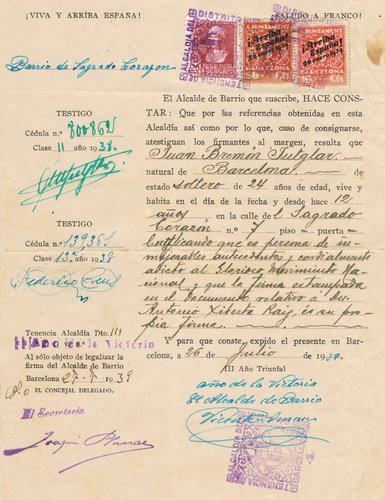 ¡VIVA Y ARRIBA ESPAÑA!
¡SALUDO A FRANCO!
ALCALDIA DEL DISTRITO
AYUNTAMIENTO
¡Arriba
España!
26 enero 1939
BARCELONA
AYUNTAMIENTO
¡Arriba
España!
26 enero 1939
BARCELONA
Barrio de Sagrado Corazon
TESTIGO
Cédula n.º 800862
Clase 11 año 1938.
TESTIGO
Cédula n.º
Clase 13ª año 1938
Federico
Tenencia Alcaldía Dto. III
Año de la Victoria
Al sólo objeto de legalizar la
firma del Alcalde de Barrio
Barcelona 27-7-1939
EL CONCEJAL DELEGADO.
El Secretario
Joaquin
El Alcalde de Barrio que suscribe, HACE CONS-
TAR: Que por las referencias obtenidas en esta
Alcaldía así como por lo que, caso de consignarse,
atestiguan los firmantes al margen, resulta que
Juan Bremon Sutglar
natural de Barcelona
estado soltero de 24 años de edad, vive y
habita en el día de la fecha y desde hace 12
años en la calle del Sagrado
Corazón n.º 7 piso - puerta -
Certificando que es persona de in-
mejorables antecedentes y cordialmente
adicto al Glorioso Movimiento Na-
cional y que la firma estampada
en el documento relativo a Dn.
Antonio Xiberta Raig, es su pro-
pia firma.
Y para que conste, expido el presente en Bar-
celona, a 26 de Julio de 1939.
III Año Triunfal
año de la Victoria
El Alcalde de Barrio